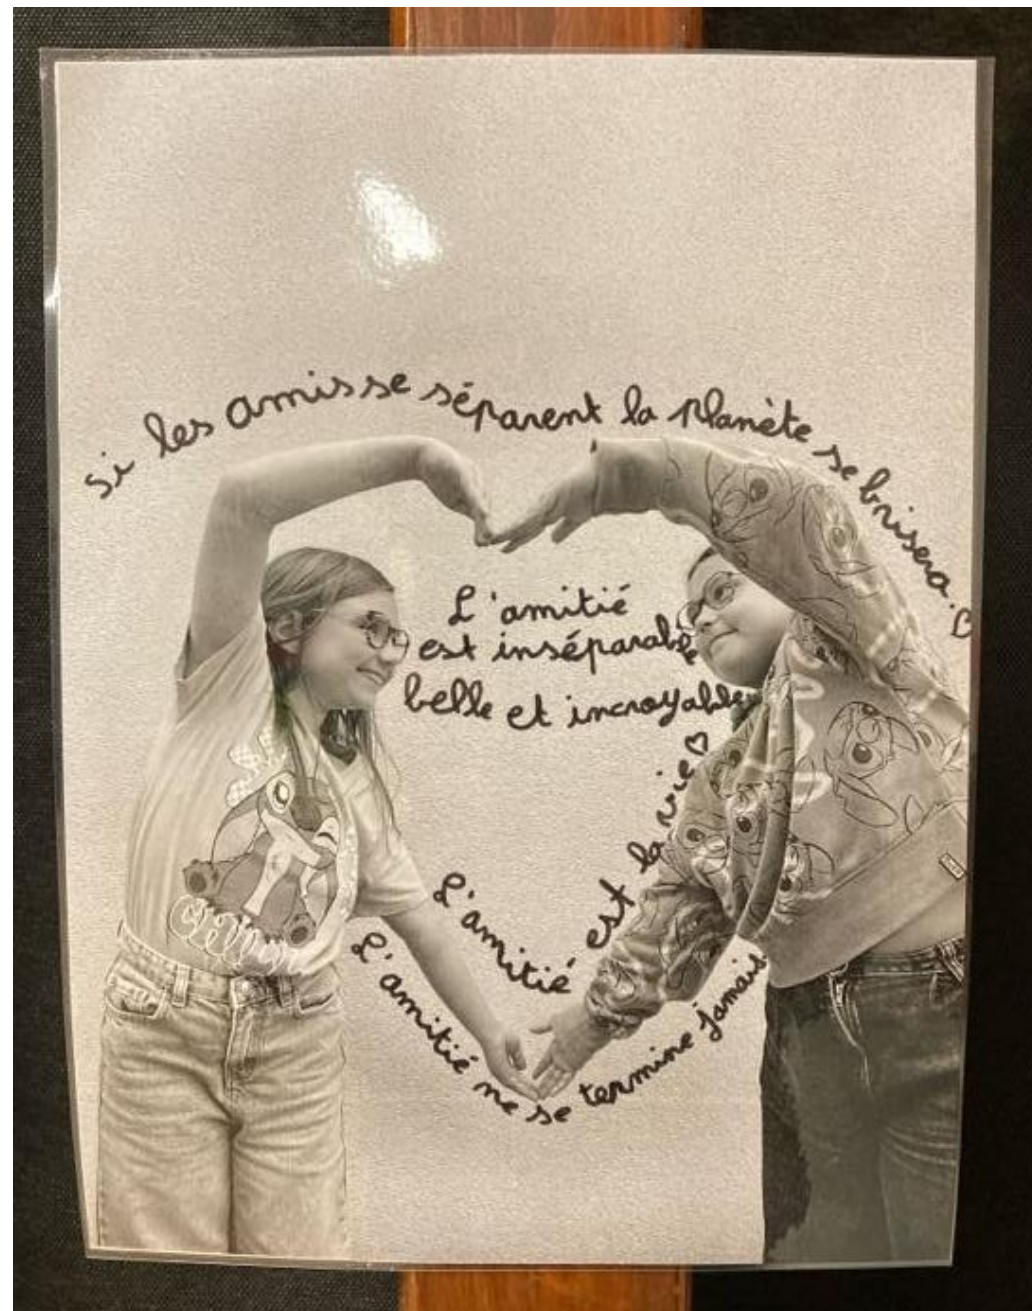 Si les amis se séparent la planète se brisera.
L'amitié
est inséparable
belle et incroyable
L'amitié est la vie
L'amitié ne se termine jamais